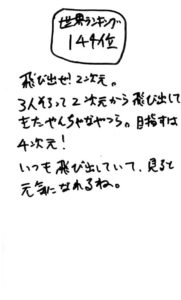 世界ランキング
144位
飛び出せ!2次元。
3人そろって2次元から飛び出して
きたやんちゃなやつら。目指すは
4次元!
いつも飛び出していて、見ると
元気になれるね。